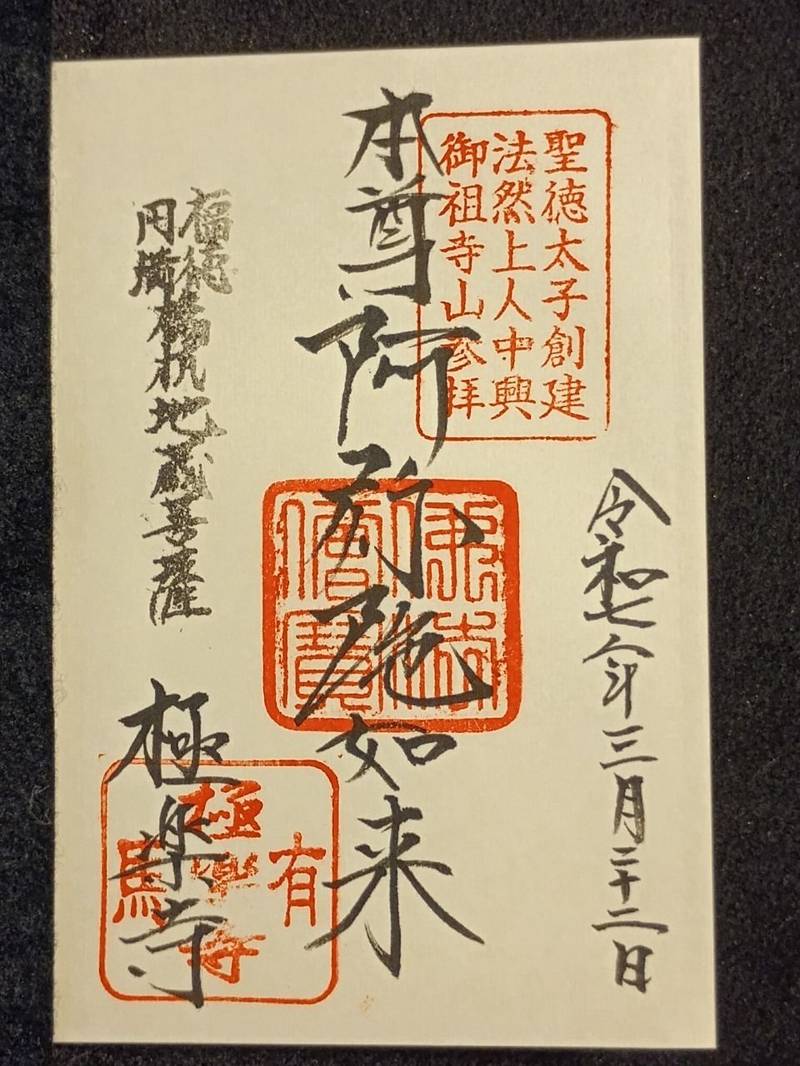 令和七年三月二十二日
聖徳太子創建
法然上人中興
御祖寺山参拝
本尊阿弥陀如来
佛法僧寶
福徳
円満
地蔵菩薩
極楽寺
有馬
極楽寺